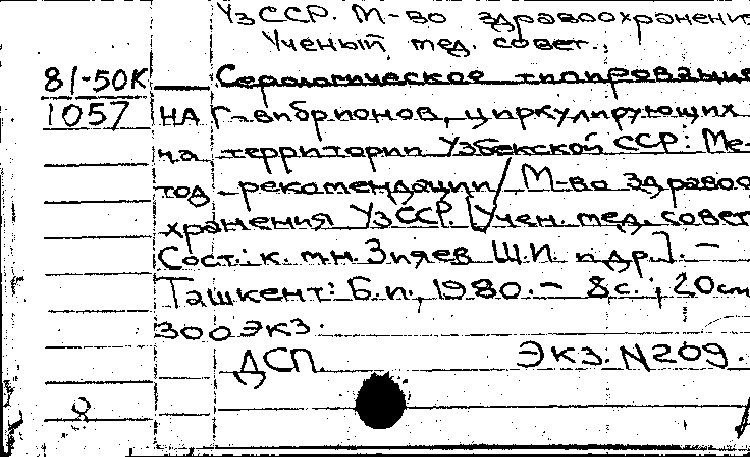 УзССР. М-во здравоохранени
Ученый мед. совет.
81-50К Серологическое типирование
1057 НАГ-вибрионов, циркулирующих
на территории Узбекской ССР: Ме-
тод. рекомендации / М-во здравоо
хранения УзССР. [Учен. мед. совет
Сост.: к. м.н. Зияев Ш.И. и др.]. –
Ташкент: Б.и., 1980. – 8с.; 20см
300 экз.
ДСП. Экз. N209.
8